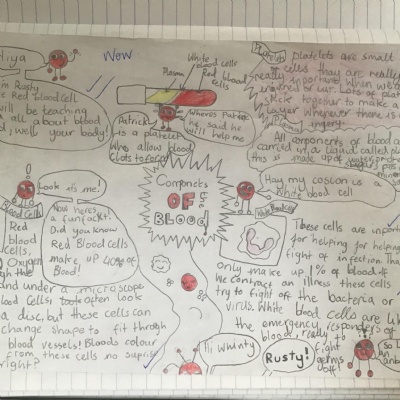 Hiya
I'm Rusty
Red Blood Cell
will be teaching
all about blood
well your body!
Wow
White
blood cells
Plasma
Red Blood
Cells
Patrick
is a platelet
allow blood
clots to form
Where's Patrick
he said he
will help me
Platelets are small
cells they are really
really important when we
Lots of
stick together to make a
layer whenever there is
injury.
All components of blood are
carried in a liquid called
this is made up of water
Look at me!
Blood Cells
Red
blood
cells,
Oxygen
Now heres
a funfact!
Did you know
Red Blood Cells
make up 40% of
Blood!
under a microscope
blood cells, often look
a disc, but these cells can
change shape to fit through
blood vessels! Bloods colour
from these cells no suprise
right?
Componets
OF
the
BLOOD!
Hay my coscon is a
white blood cell
These cells are importan
for helping for helping
fight of infection. They
only make up 1% of blood. If
we contract an illness these cells
try to fight off the bacteria or
virus. White blood cells are like
the emergency responders of
blood, ready to
fight
germs
off!
Hi Whinty
Rusty!
So
an